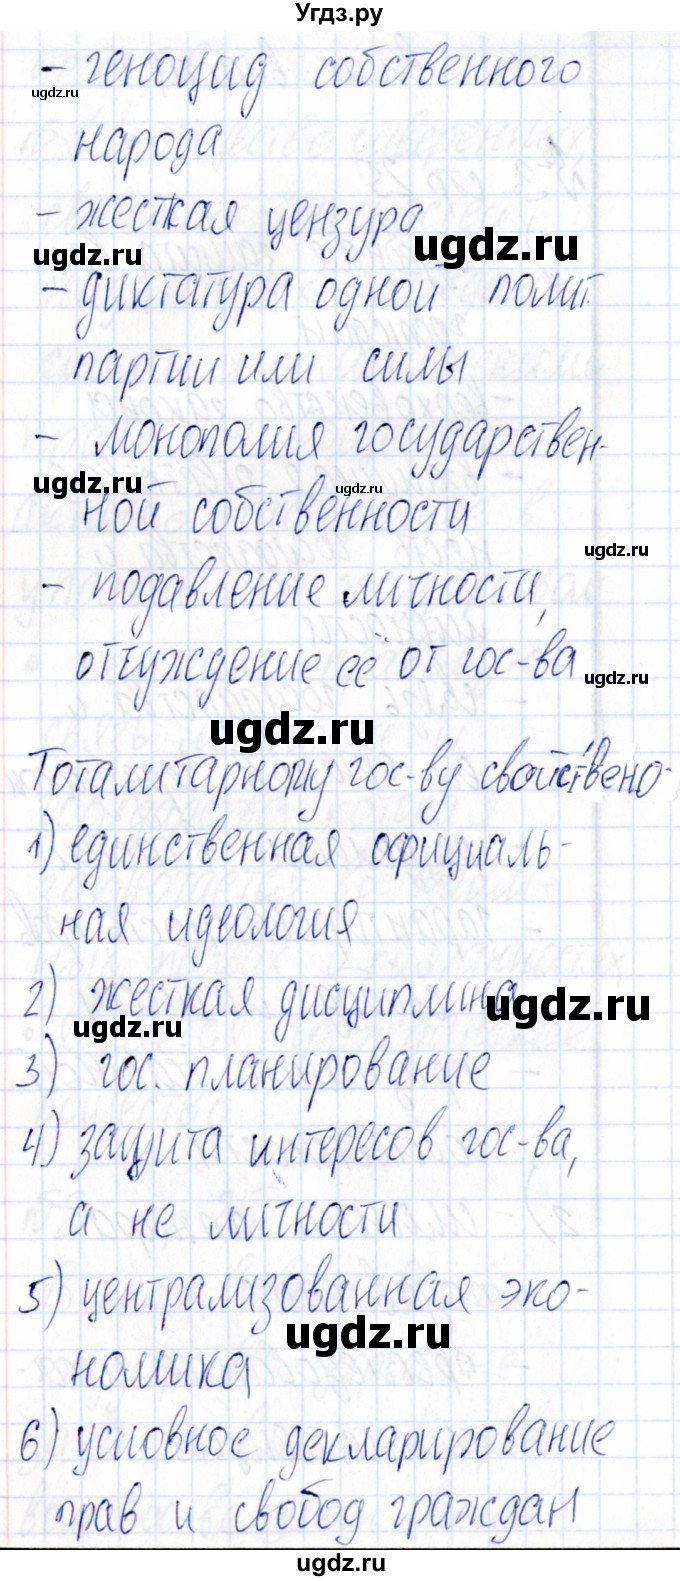 Угдз.ру
- геноцид собственного
ugdz.ru
народа
- жесткая цензура
ugdz.ru
ugdz.ru
- диктатура одной полит.
партии или силы
- монополия государствен-
ugdz.ru
ugdz.ru
ной собственности
ugdz.ru
- подавление личности,
отчуждение её от гос-ва
ugdz.ru
ugdz.ru
Тоталитарному гос-ву свойствено-
1) единственная официаль-
ная идеология
2) жесткая дисциплина
ugdz.ru
ugdz.ru
3) гос. планирование
4) защита интересов гос-ва,
а не личности
5) централизованная эко-
ugdz.ru
номика
6) условное декларирование
прав и свобод граждан
ugdz.ru